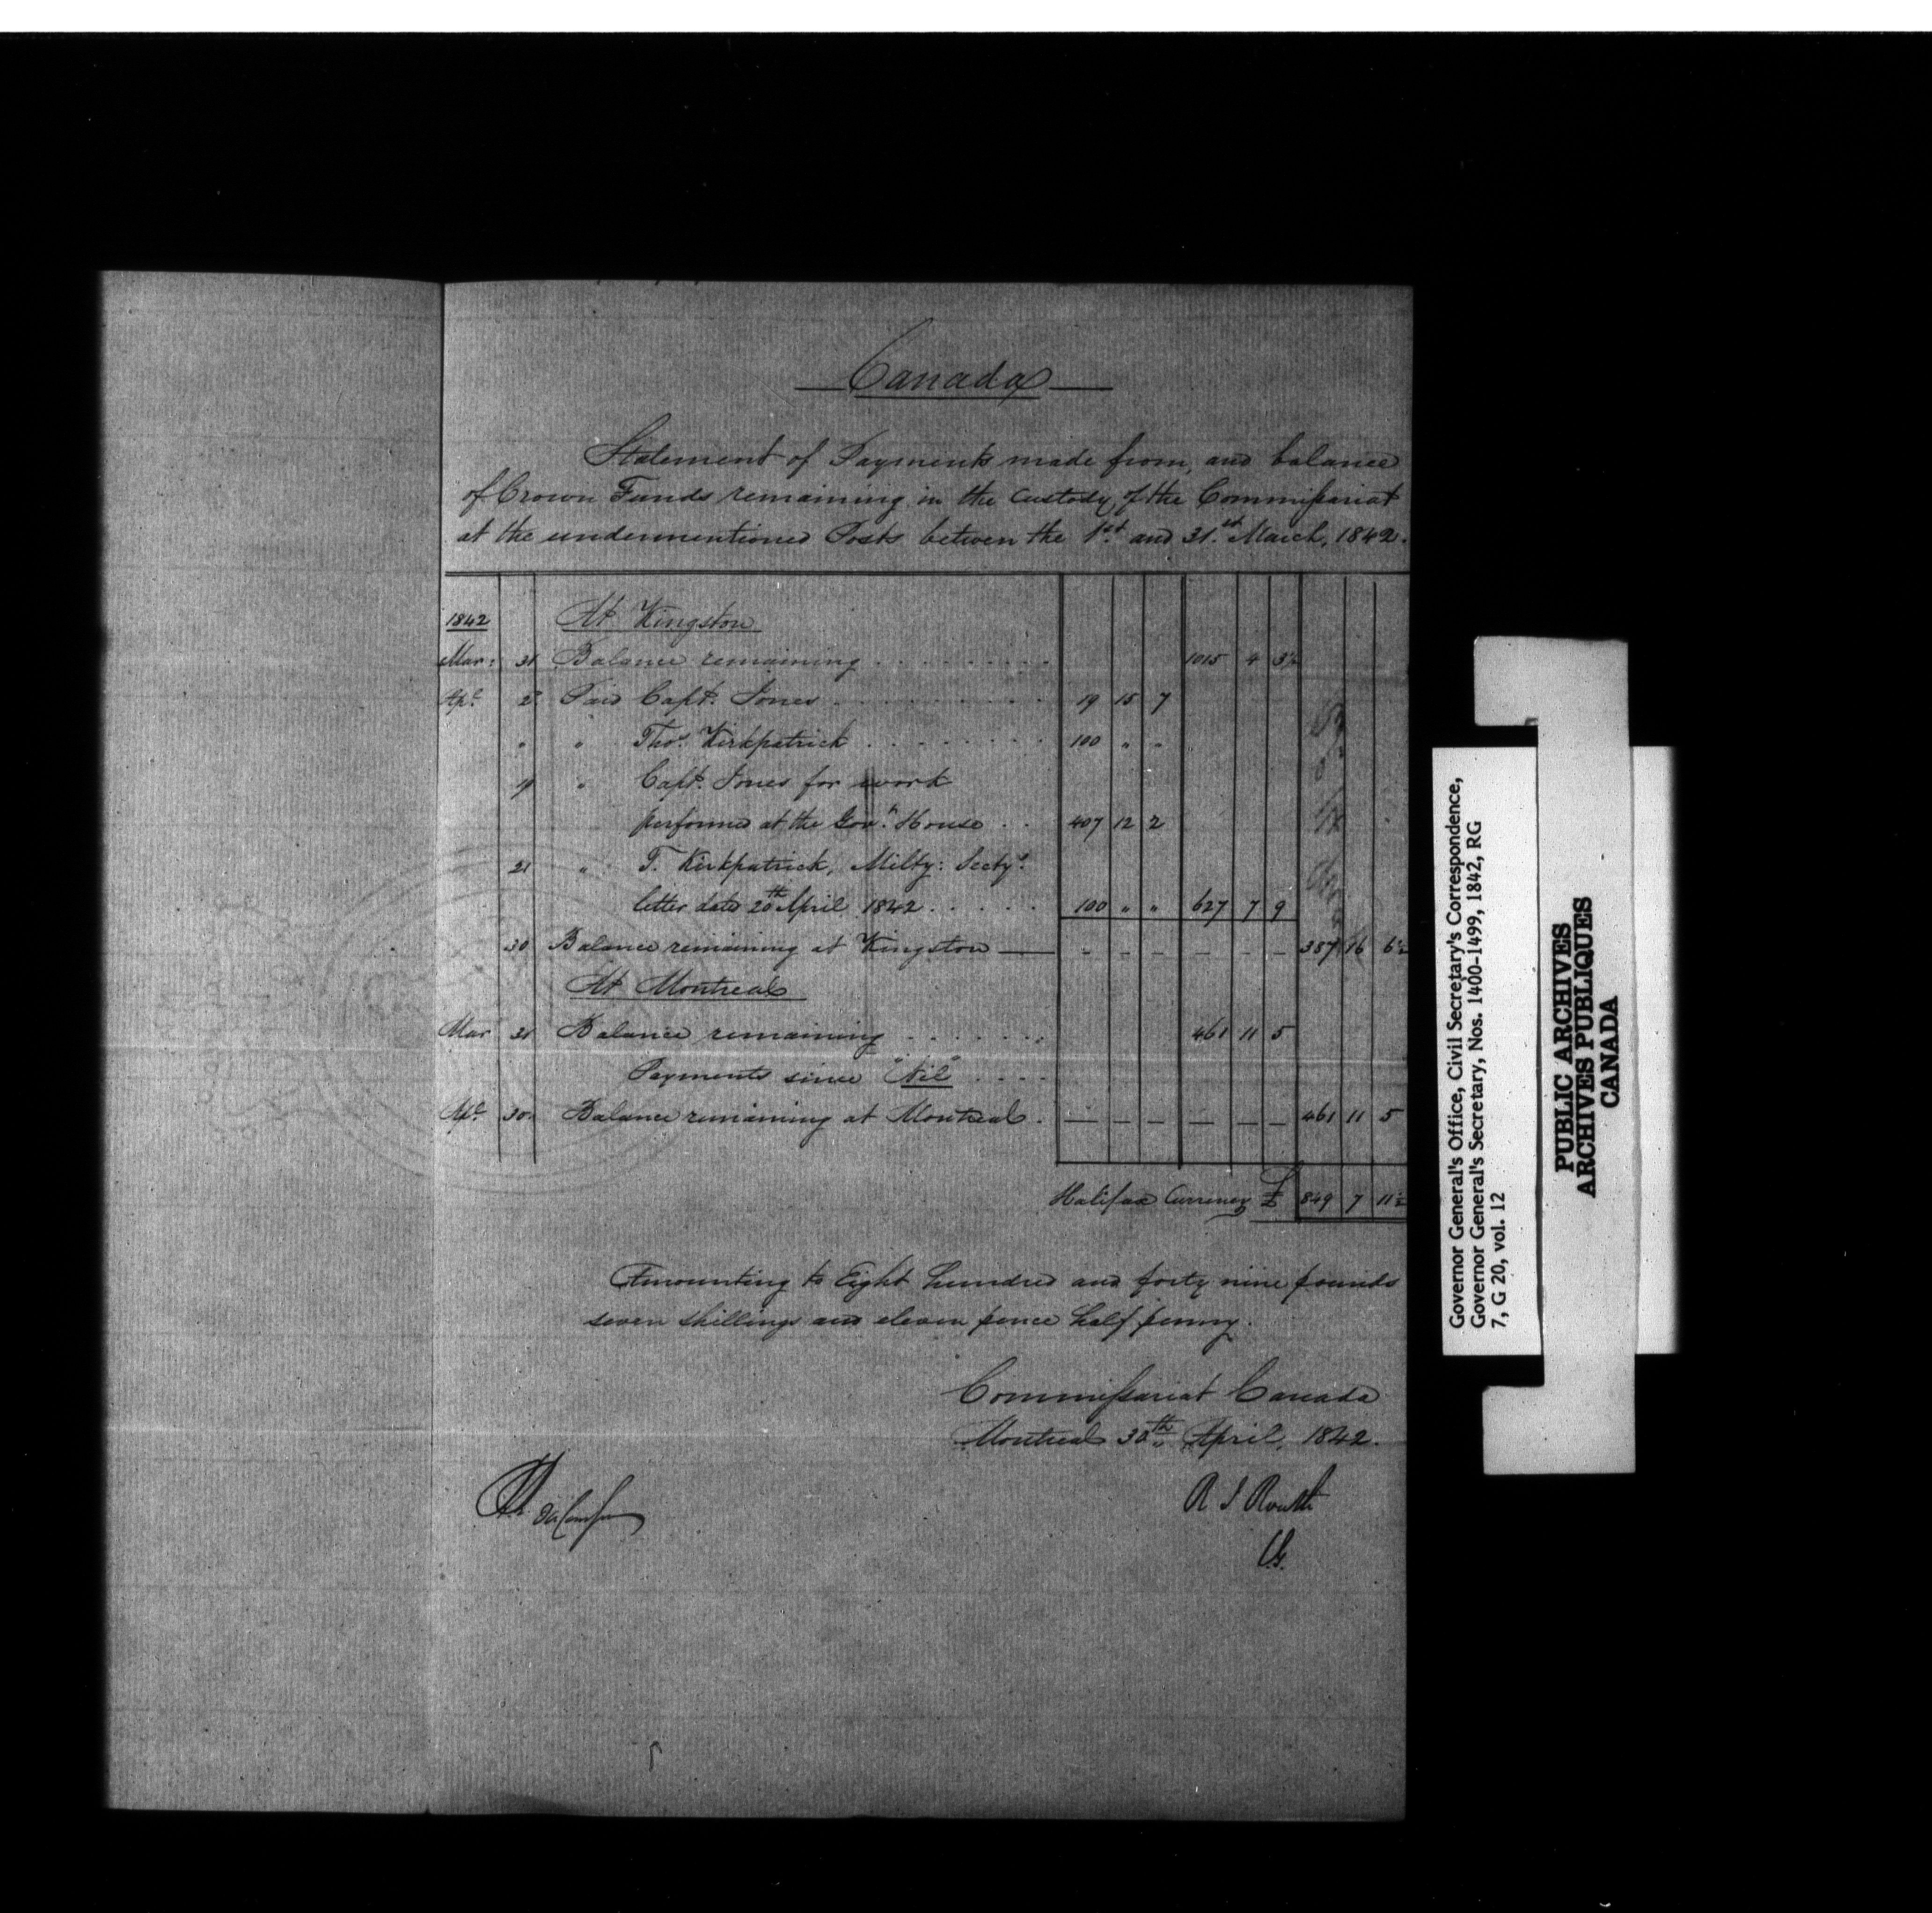 Canada
Statement of Payments made from, and balance
of Crown Funds remaining in the custody of the Commissariat
at the undermentioned Posts betwen the 1st and 31st March, 1842.
1842 At Kingston
Mar: 31 Balance remaining . . . . . . . . . 1015 4 3½
Apl 2 Paid Capt. Jones . . . . . . . . . . 19 15 7
" " " Thos. Kirkpatrick . . . . . . . . 100 " "
19 " Capt. Jones for work
performed at the Govt. House . . 407 12 2
21 " T. Kirkpatrick, Milty: Secty's
letter dated 20th April 1842 . . . . . 100 " " 627 7 9
30 Balance remaining at Kingston — - - - - - - 387 16 6½
At Montreal
Mar 31 Balance remaining . . . . . . . 461 11 5
Payments since "Nil" . . . .
Apl. 30. Balance remaining at Montreal . — — — — — — 461 11 5
Halifax Currency £ 849 7 11½
Amounting to Eight hundred and forty nine pounds
seven shillings and eleven pence half penny.
Commissariat Canada
Montreal 30th April, 1842.
R I Routh
CG.
Governor General's Office, Civil Secretary's Correspondence,
Governor General's Secretary, Nos. 1400-1499, 1842, RG
7, G 20, vol. 12
PUBLIC ARCHIVES
ARCHIVES PUBLIQUES
CANADA